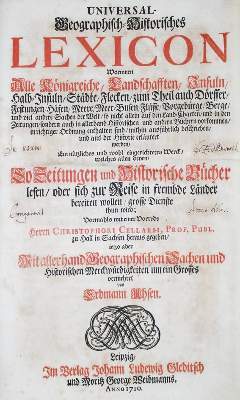 UNIVERSAL-
Geographisch-Historisches
LEXICON
Worinnen
Alle Königreiche, Landschafften, Insuln,
Halb-Insuln, Städte, Flecken, zum Theil auch Dörffer,
Festungen, Häfen, Meere, Meer-Busen, Flüsse, Vorgebürge, Berge,
und viel anders Sachen der Welt, so nicht allein auf den Land-Charten, und in den
Zeitungen, sondern auch in allerhand Historischen und andern Büchern vorkommen,
in richtiger Ordnung enthalten sind, meistens ausführlich beschrieben,
und aus der Historie erläutert
werden,
ein nützliches und wohl eingerichtetes Werck,
welches allen denen,
So Zeitungen und Historische Bücher
lesen, oder sich zur Reise in frembde Länder
bereiten wollen, grosse Dienste
thun wird;
Vormahls unter der Vorrede
Herrn CHRISTOPHORI CELLARII, PROF. PUBL.
zu Hall in Sachsen heraus gegeben,
jetzo aber
Mit allerhand Geographischen Sachen und
Historischen Merckwürdigkeiten um ein Grosses
vermehret
von
Erdmann Uhsen.
Leipzig,
Im Verlag Johann Ludewig Gleditsch
und Moritz George Weidmanns.
Anno 1710.